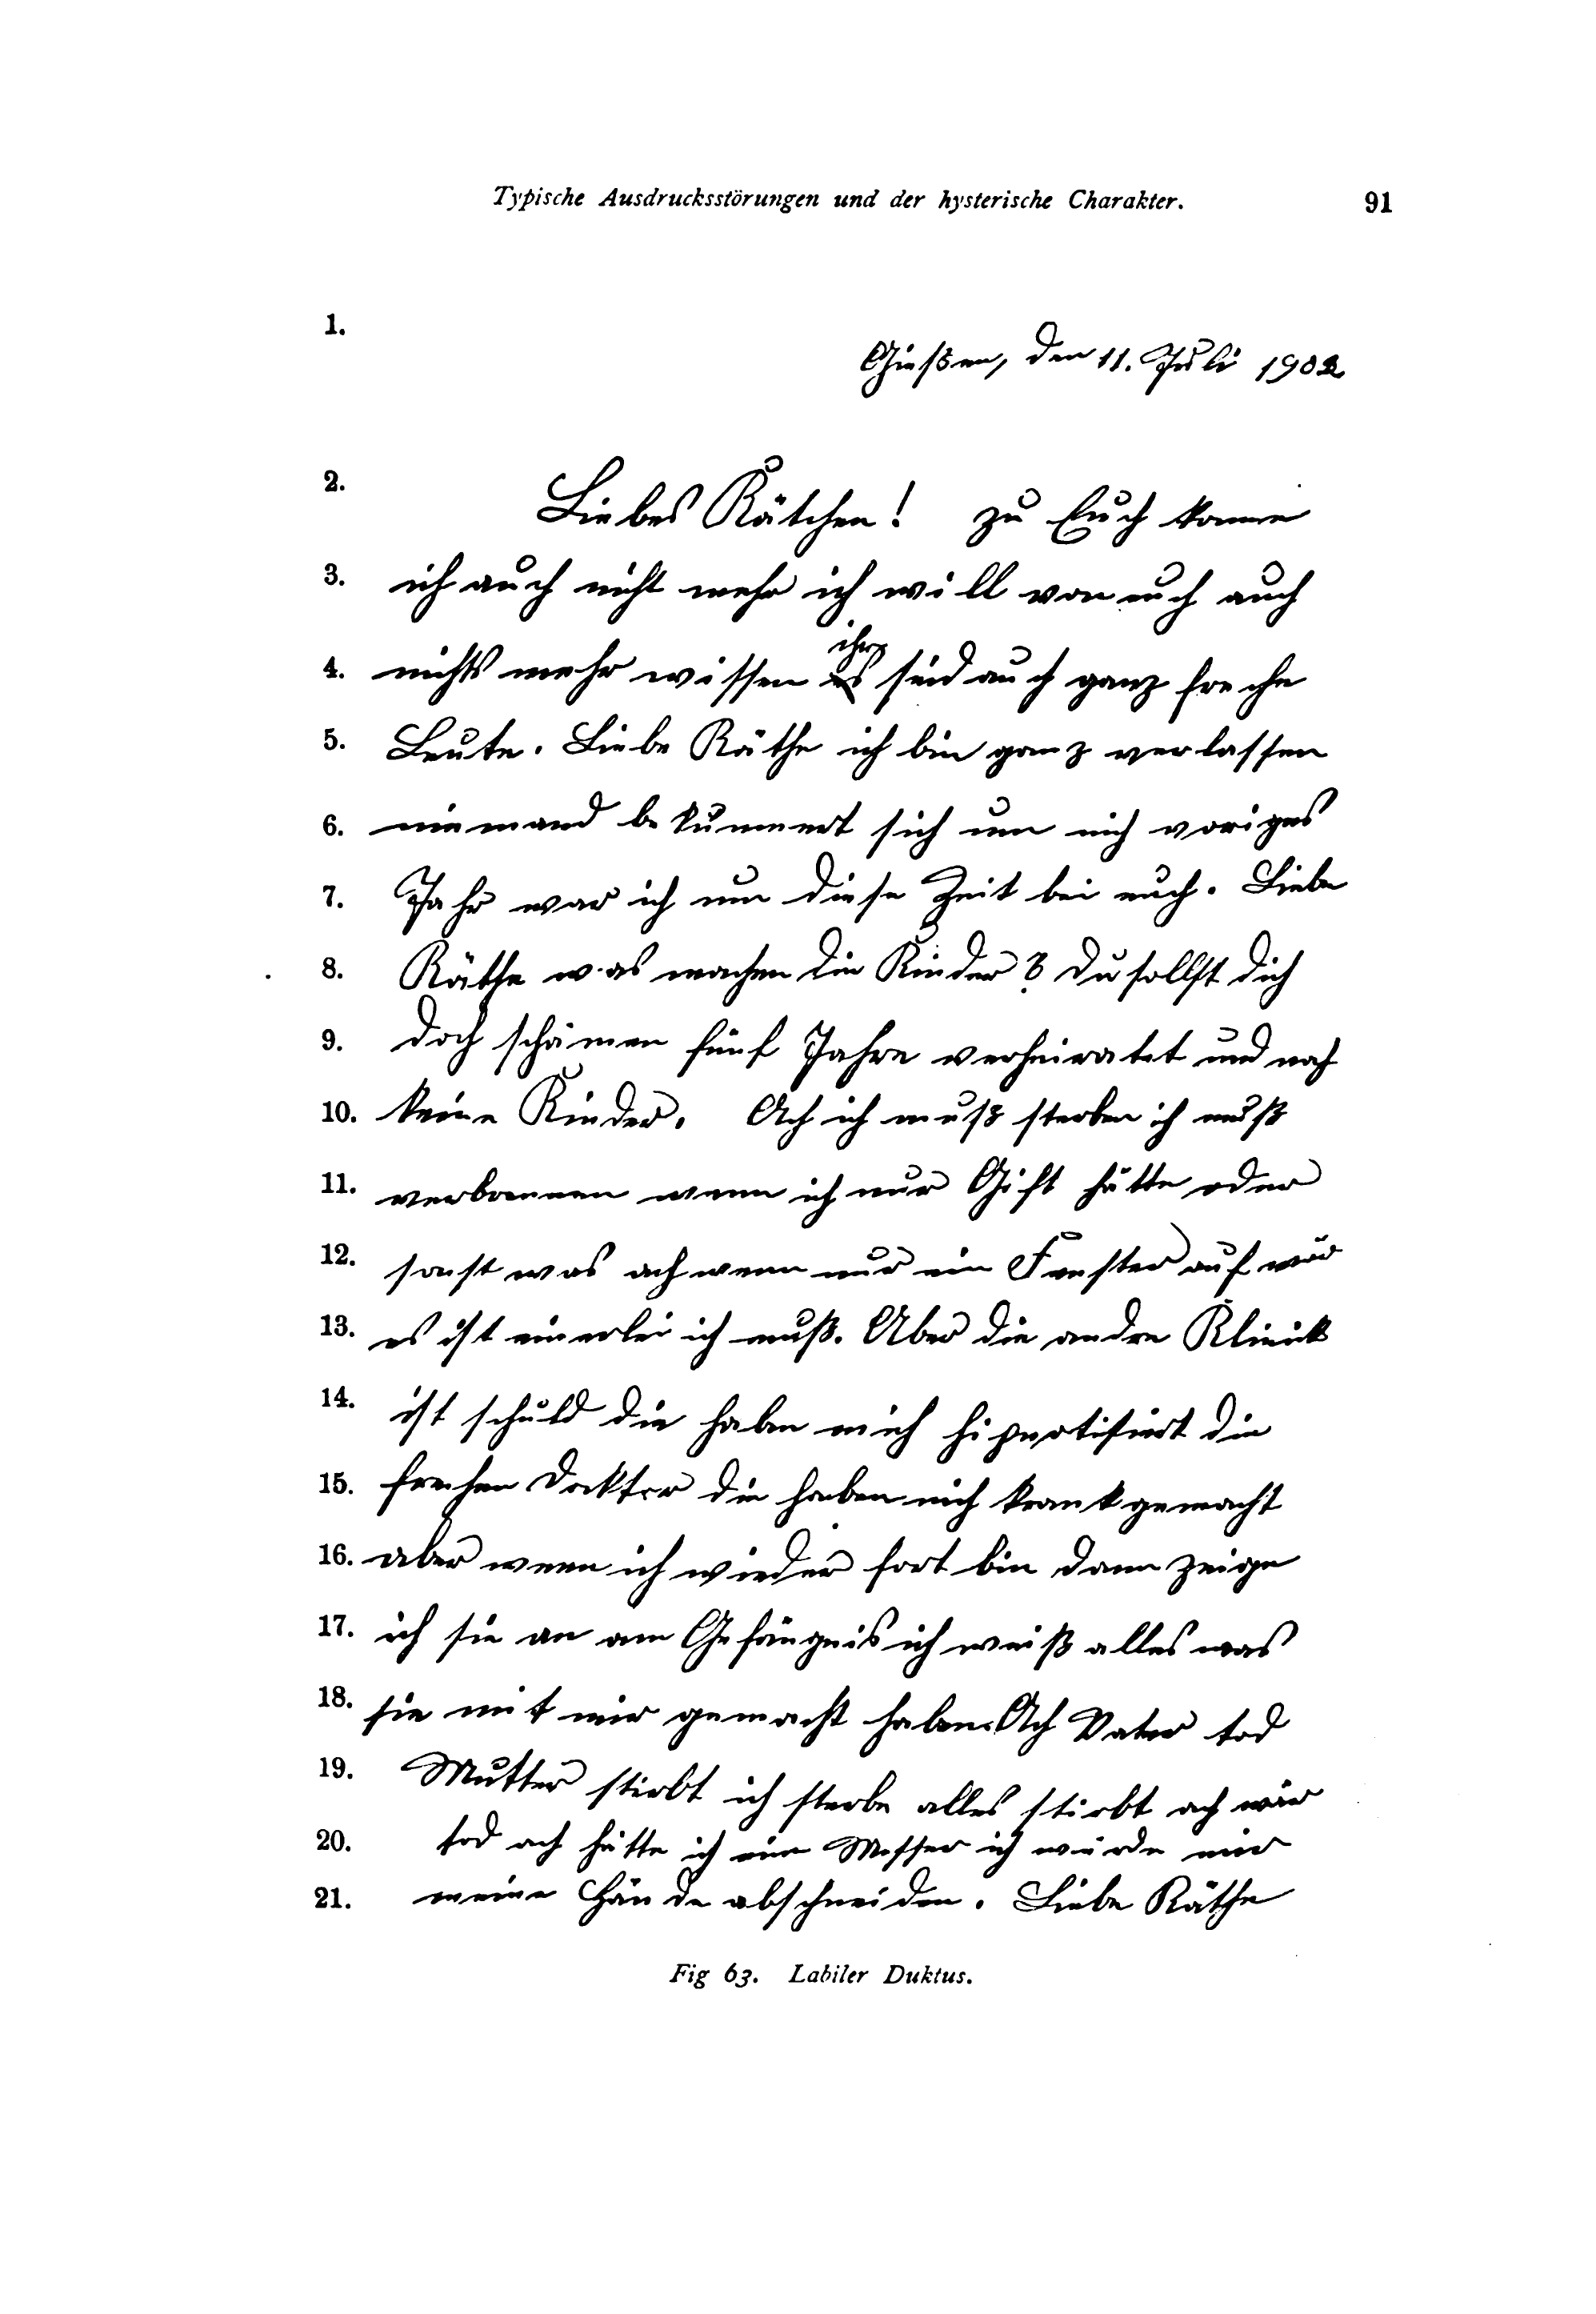 Typische Ausdrucksstörungen und der hysterische Charakter. 91
1.
Gießen, den 11. Juli 1902
2. Liebes Kätchen! zu Euch komme
3. ich auch nicht mehr ich will von euch auch
4. nichts mehr wissen ihr sind auch ganz freche
5. Leute. Liebe Käthe ich bin ganz verlassen
6. niemand bekümmert sich um mich voriges
7. Jahr war ich um diese Zeit bei euch. Liebe
8. Käthe was machen die Kinder? Du sollst dich
9. doch schämen fünf Jahre verheiratet und noch
10. keine Kinder. Ach ich muß sterben ich muß
11. verbrennen wenn ich nur Gift hätte oder
12. sonst was ach wenn nur ein Fenster auf wär
13. es ist einerlei ich muß. Aber die andre Klinick
14. ist schuld die haben mich hipnotisiert die
15. frechen Doktor die haben mich krank gemacht
16. aber wenn ich wieder fort bin dann zeige
17. ich sie an am Gefängnis ich weiß alles was
18. sie mit mir gemacht haben. Ach Vater tod
19. Mutter stirbt ich sterbe alles stirbt ach wär
20. tod ach hätte ich ein Messer ich würde mir
21. meine Hände abschneiden. Liebe Käthe
Fig 63. Labiler Duktus.